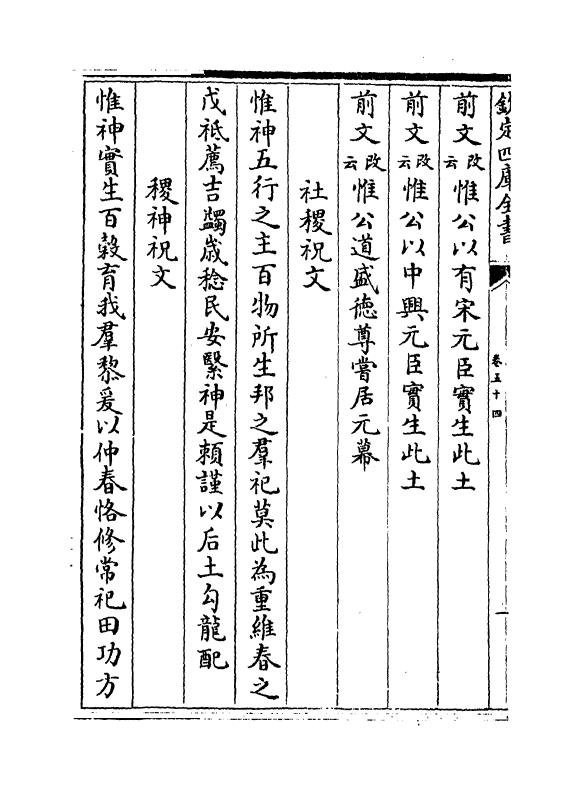 欽定四庫全書
卷五十四
前文改云惟公以有宋元臣實生此土
前文改云惟公以中興元臣實生此土
前文改云惟公道盛德尊嘗居元幕
社稷祝文
惟神五行之主百物所生邦之羣祀莫此為重維春之
戊祗薦吉蠲歲稔民安繄神是賴謹以后土勾龍配
稷神祝文
惟神實生百穀育我羣黎爰以仲春恪修常祀田功方